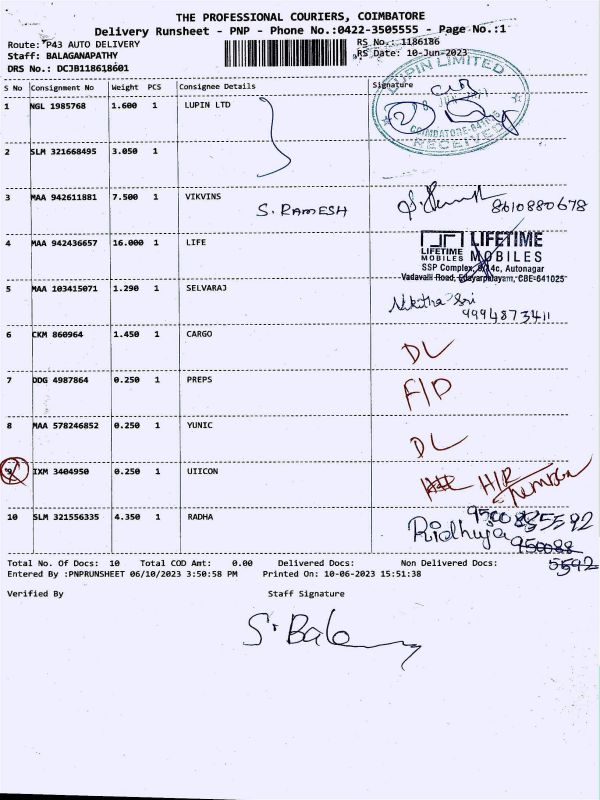 THE PROFESSIONAL COURIERS, COIMBATORE
Delivery Runsheet - PNP - Phone No.:0422-3505555 - Page No.:1
Route: P43 AUTO DELIVERY
RS No.: 1186186
Staff: BALAGANAPATHY
RS Date: 10-Jun-2023
DRS No.: DCJB118618601
S No Consignment No Weight PCS Consignee Details Signature
LUPIN LIMITED
COIMBATORE
RECEIVED
1 NGL 1985768 1.600 1 LUPIN LTD
2 SLM 321668495 3.050 1
3 MAA 942611881 7.500 1 VIKVINS
S. RAMESH 8610880678
4 MAA 942436657 16.000 1 LIFE
LIFETIME MOBILES
LIFETIME
MOBILES
SSP Complex, 8/14c, Autonagar
Vadavalli Road, Edayarpalayam, CBE-641025
5 MAA 103415071 1.290 1 SELVARAJ
Nikitha Sri
9994873411
6 CKM 860964 1.450 1 CARGO
DL
7 DDG 4987864 0.250 1 PREPS
F/D
8 MAA 578246852 0.250 1 YUNIC
DL
9 IXM 3404950 0.250 1 UIICON
H/R
10 SLM 321556335 4.350 1 RADHA
Ridhuja
95008
5592
95008
5592
Total No. Of Docs: 10 Total COD Amt: 0.00 Delivered Docs: Non Delivered Docs:
Entered By :PNPRUNSHEET 06/10/2023 3:50:58 PM Printed On: 10-06-2023 15:51:38
Verified By Staff Signature
S. Bala